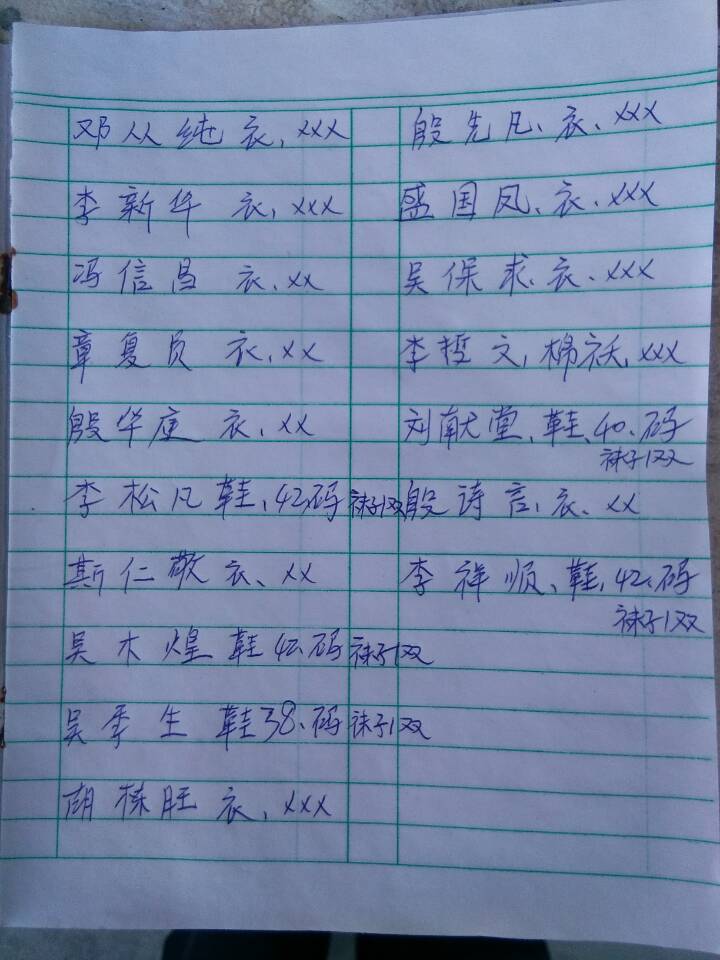 邓从纯 衣、XXX
李新华 衣、XXX
冯信昌 衣、XX
章复员 衣、XX
殷华庭 衣、XX
李松凡 鞋、42码 袜子1双
斯仁敬 衣、XX
吴木煌 鞋42码 袜子1双
吴季生 鞋38、码 袜子1双
胡栋旺 衣、XXX
殷先凡、衣、XXX
盛国凤、衣、XXX
吴保求、衣、XXX
李哲文,棉袄,XXX
刘献堂、鞋、40、码
袜子1双
殷诗言、衣、XX
李祥顺、鞋、42、码
袜子1双